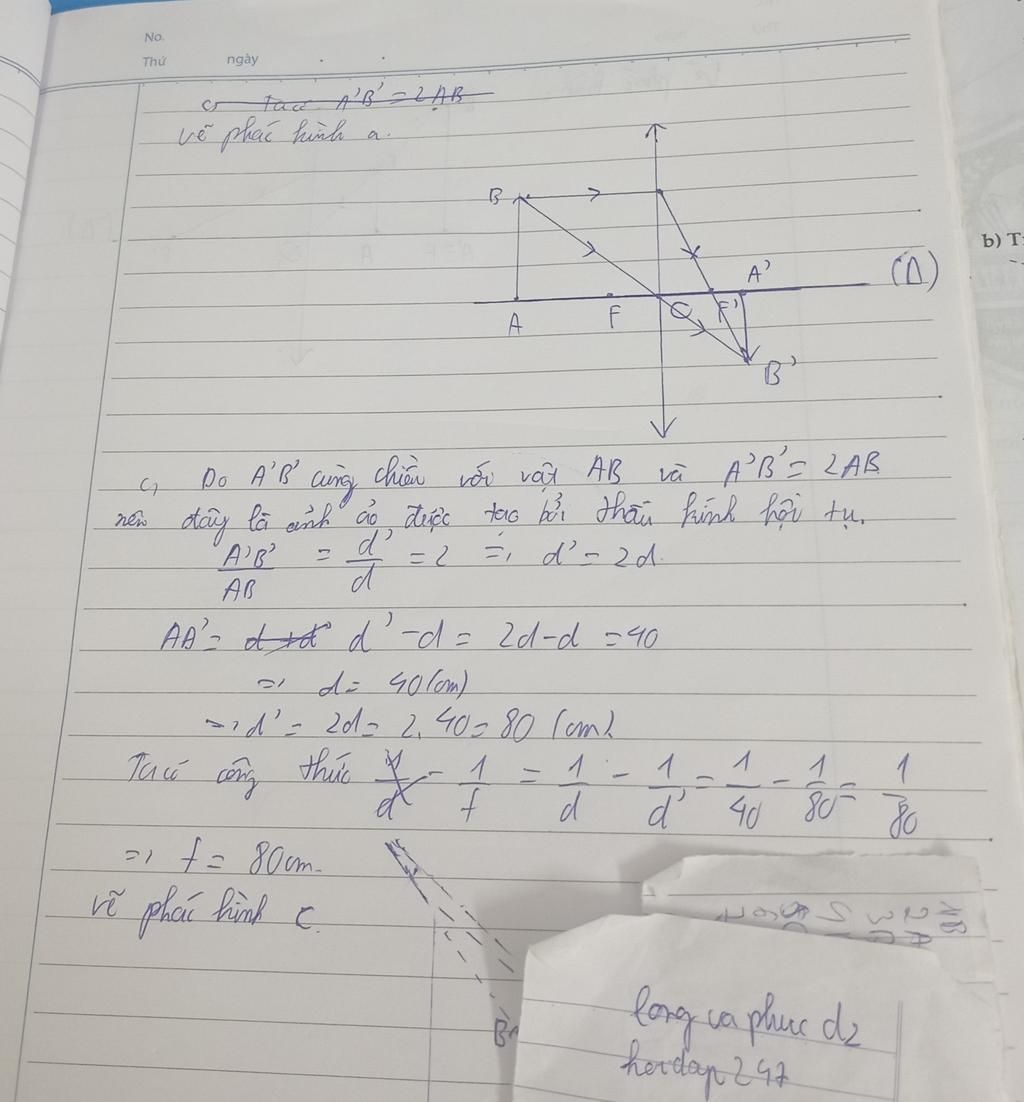 No.
Thứ ngày
c, Ta có A'B' = 2AB
vẽ phác hình a.
B
A'
(Δ)
A F O F'
B'
b) T
c, Do A'B' cùng chiều với vật AB và A'B' = 2AB
nên đây là ảnh ảo, được tạo bởi thấu kính hội tụ.
A'B'/AB = d'/d = 2 => d' = 2d.
AA' = d + d' d' - d = 2d - d = 40
=> d = 40 (cm)
=> d' = 2d = 2.40 = 80 (cm)
Ta có công thức 1/d - 1/f = 1/d - 1/d' = 1/40 - 1/80 = 1/80
=> f = 80cm.
vẽ phác hình c.
B'
long va phuc d2
hoidap 247